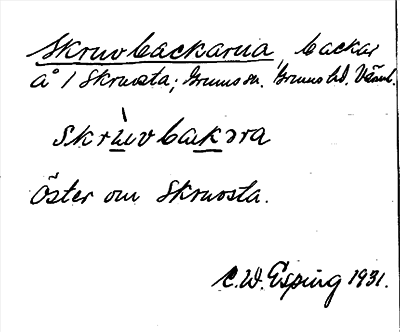 Skruvbackarna, backar
å 1 Skruvsta; Grums sn. Grums hd. Värml.
skrùvbakəra
Öster om Skruvsta.
C.W. Esping 1931.